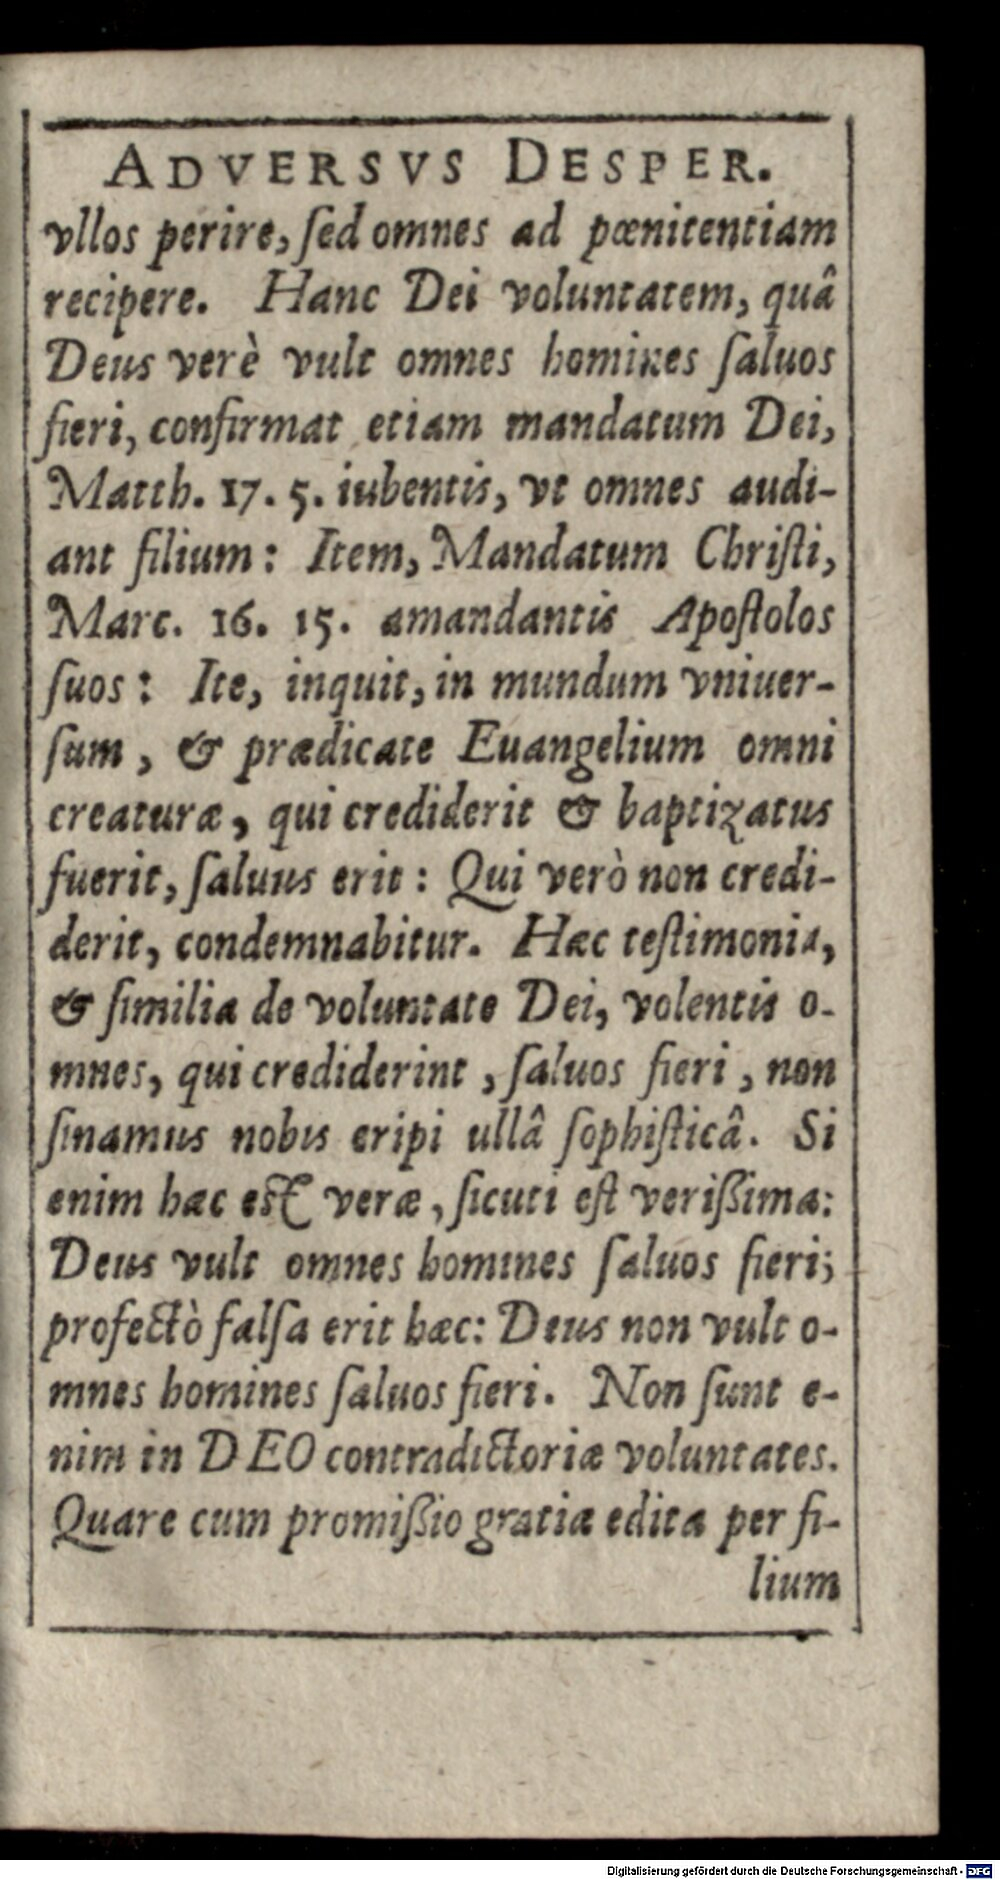 ADVERSVS DESPER.
vllos perire, ſed omnes ad pœnitentiam
recipere. Hanc Dei voluntatem, quâ
Deus verè vult omnes homines ſaluos
fieri, confirmat etiam mandatum Dei,
Matth. 17. 5. iubentis, vt omnes audi-
ant filium: Item, Mandatum Chriſti,
Marc. 16. 15. amandantis Apoſtolos
ſuos: Ite, inquit, in mundum vniuer-
ſum, & prædicate Euangelium omni
creaturæ, qui crediderit & baptizatus
fuerit, ſaluus erit: Qui verò non credi-
derit, condemnabitur. Hæc teſtimonia,
& ſimilia de voluntate Dei, volentis o-
mnes, qui crediderint, ſaluos fieri, non
ſinamus nobis eripi ullâ ſophiſticâ. Si
enim hæc est veræ, ſicuti eſt veriſſima:
Deus vult omnes homines ſaluos fieri;
profectò falſa erit hæc: Deus non vult o-
mnes homines ſaluos fieri. Non ſunt e-
nim in DEO contradictoriæ voluntates.
Quare cum promiſſio gratiæ edita per fi-
lium
Digitalisierung gefördert durch die Deutsche Forschungsgemeinschaft - DFG